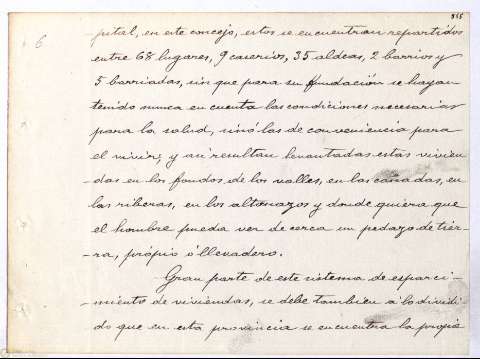 855
6
-pital, en este concejo, estos se encuentran repartidos
entre 68 lugares, 9 caserios, 35 aldeas, 2 barrios y
5 barriadas, sin que para su fundación se hayan
tenido nunca en cuenta las condiciones necesarias
para la salud, sinó las de conveniencia para
el vivir, y asi resultan levantadas estas vivien
das en los fondos de los valles, en las cañadas, en
las riberas, en los altonazos y donde quiera que
el hombre pueda ver de cerca un pedazo de tier-
-ra, própio ó llevadero.
Gran parte de este sistema de esparci-
-miento de viviendas, se debe tambien a lo dividi-
do que en esta provincia se encuentra la propie